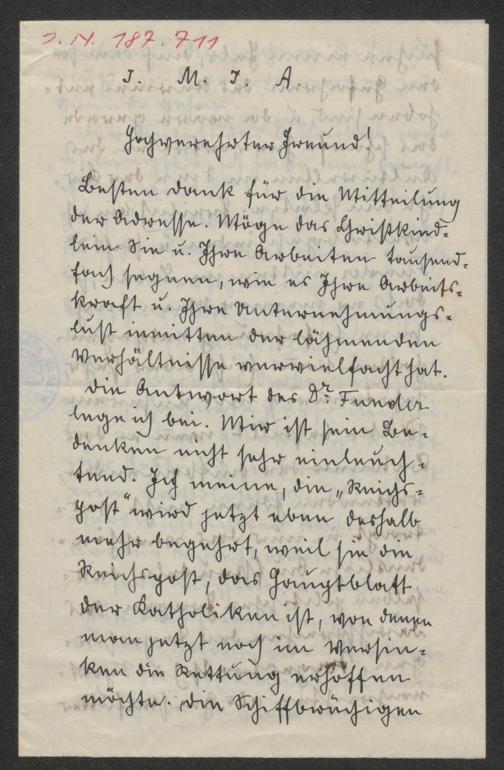 J. N. 187.711
J. M. J. A.
Hochverehrter Freund!
Besten Dank für die Mitteilung
der Adresse. Möge das Christkind-
lein Sie u. Ihre Arbeiten tausend-
fach segnen, wie es Ihre Arbeits-
kraft u. Ihre Unternehmungs-
lust inmitten der lähmenden
Verhältnisse vervielfacht hat.
Die Antwort des Dr. Funder
lege ich bei. Mir ist sein Be-
denken nicht sehr einleuch-
tend. Ich meine, die „Reichs-
post“ wird jetzt eben deshalb
mehr begehrt, weil sie die
Reichspost, das Hauptblatt
der Katholiken ist, von denen
man jetzt noch im Versin-
ken die Rettung erhoffen
möchte. Die Schiffbrüchigen